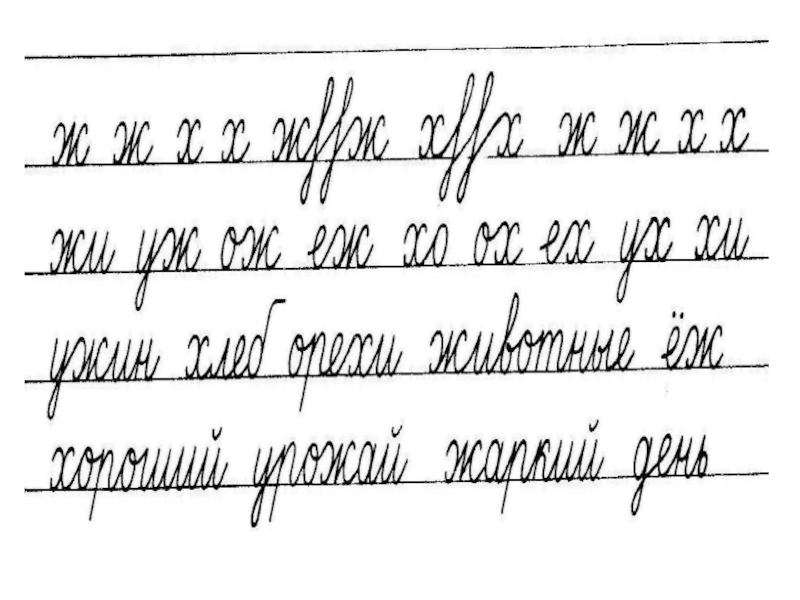 ж ж х х жſſж хſſх ж ж х х
жи уж ож еж хо ох ех ух хи
ужин хлеб орехи животные ёж
хороший урожай жаркий день